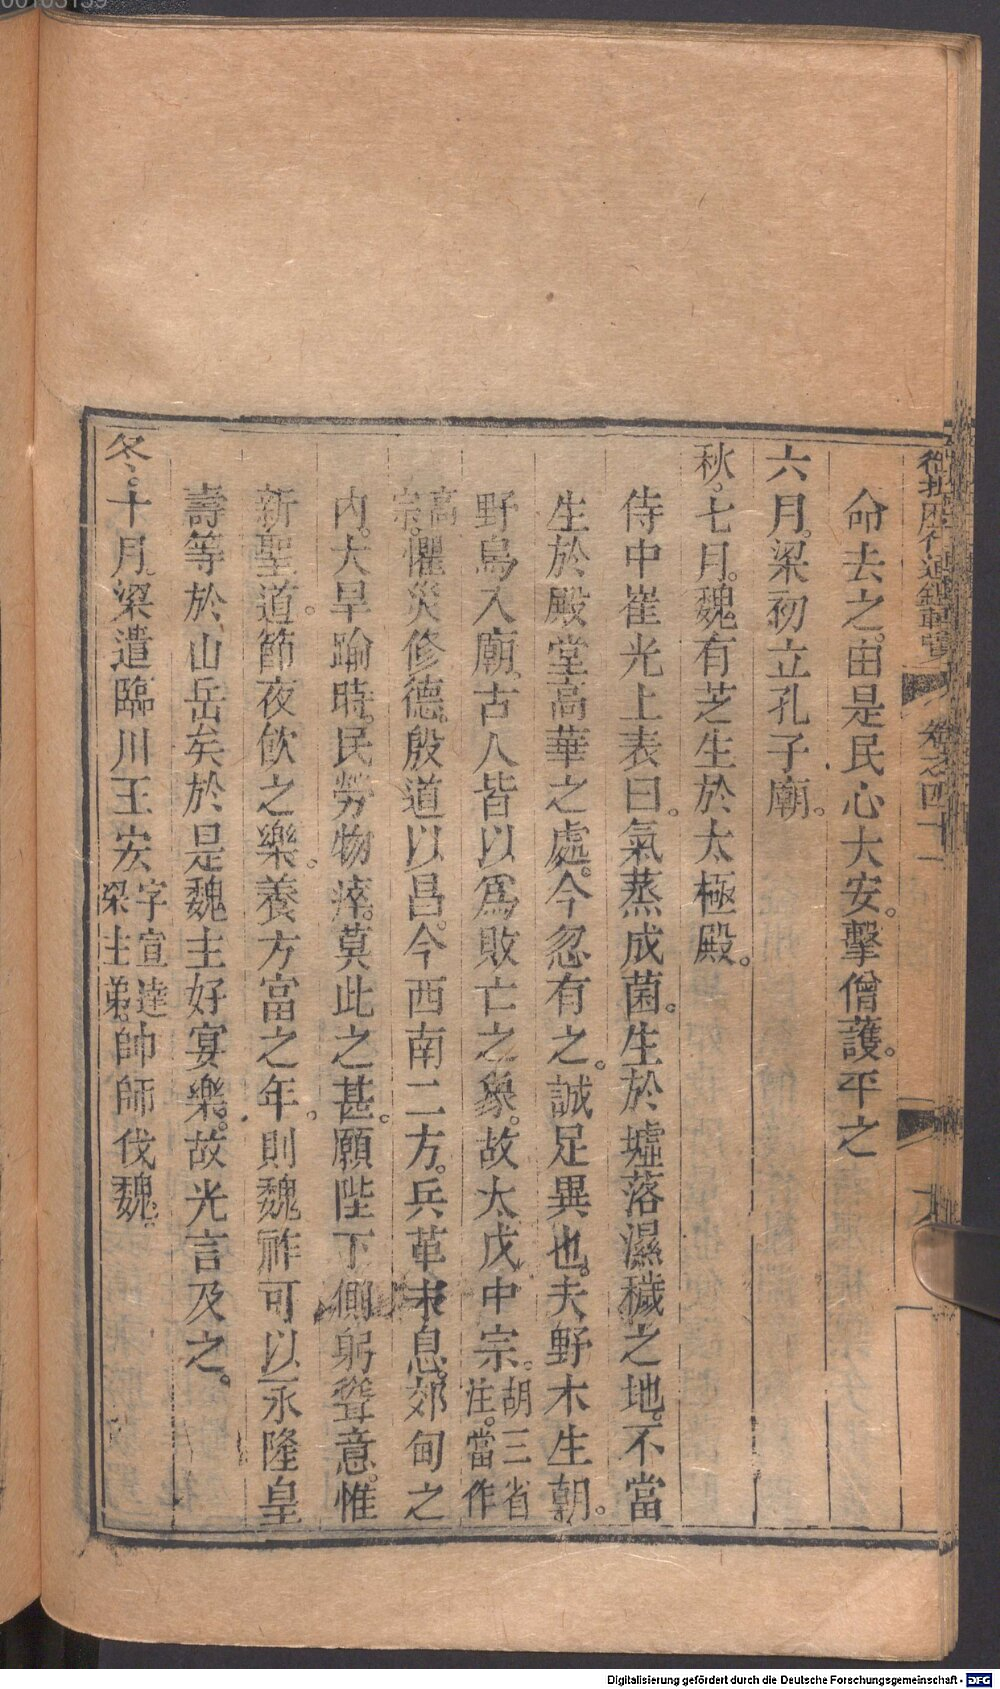 命去之。由是民心大安。擊僧護。平之
六月。梁初立孔子廟。
秋。七月。魏有芝生於太極殿。
侍中崔光上表曰。氣蒸成菌。生於墟落濕穢之地。不當
生於殿堂高華之處。今忽有之。誠足異也。夫野木生朝。
野鳥入廟。古人皆以爲敗亡之象。故太戊中宗。胡三省注。當作
高宗。懼災修德。殷道以昌。今西南二方。兵革未息。郊甸之
內。大旱踰時。民勞物瘁。莫此之甚。願陛下側躬聳意。惟
新聖道。節夜飲之樂。養方富之年。則魏祚可以永隆。皇
壽等於山岳矣。於是魏主好宴樂。故光言及之。
冬。十月。梁遣臨川王宏字宣達梁主弟。帥師伐魏。
卷之四十一
00103159
Digitalisierung gefördert durch die Deutsche Forschungsgemeinschaft - DFG